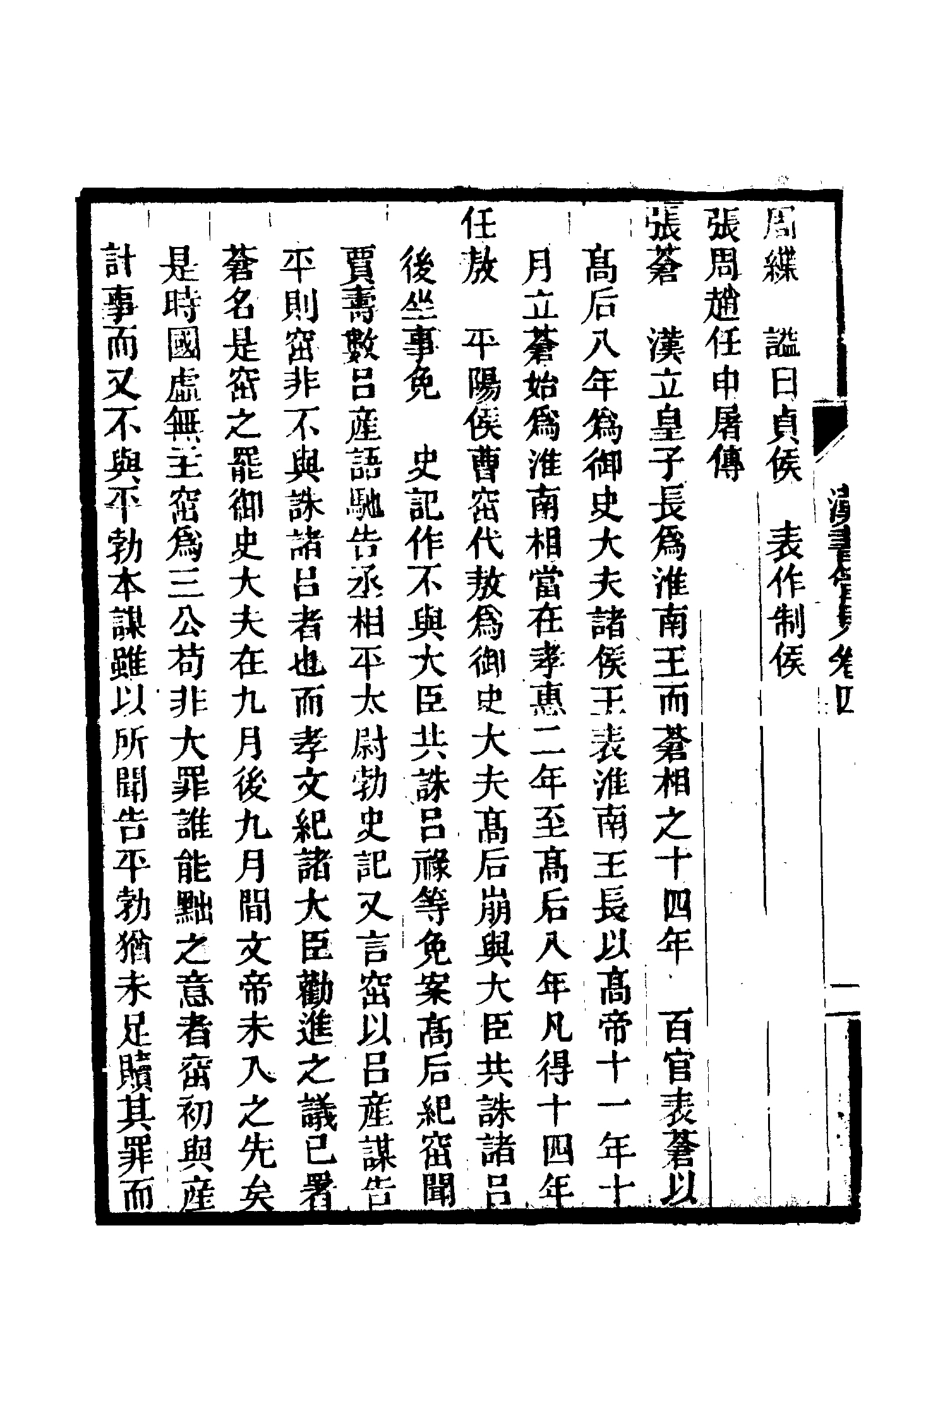 周緤　諡曰貞侯　表作制侯
張周趙任申屠傳
張蒼　漢立皇子長爲淮南王而蒼相之十四年　百官表蒼以
高后八年爲御史大夫諸侯王表淮南王長以高帝十一年十
月立蒼始爲淮南相當在孝惠二年至高后八年凡得十四年
任敖　平陽侯曹窋代敖爲御史大夫高后崩與大臣共誅諸呂
後坐事免　史記作不與大臣共誅呂祿等免案高后紀窋聞
賈壽數呂產語馳告丞相平太尉勃史記又言窋以呂產謀告
平則窋非不與誅諸呂者也而孝文紀諸大臣勸進之議已署
蒼名是窋之罷御史大夫在九月後九月間文帝未入之先矣
是時國虛無主窋爲三公苟非大罪誰能黜之意者窋初與產
計事而又不與平勃本謀雖以所聞告平勃猶未足贖其罪而
漢書管見卷四
二